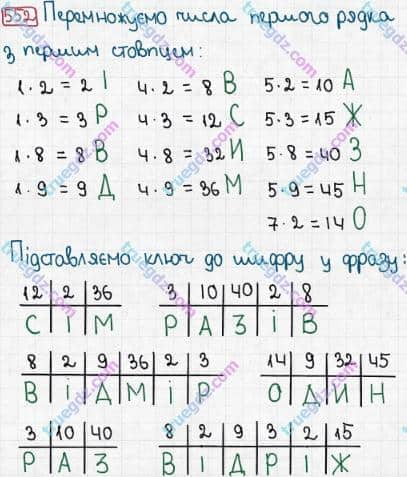 552 Перемножуємо числа першого рядка
з першим стовпцем:
1·2=2 І 4·2=8 В 5·2=10 А
1·3=3 Р 4·3=12 С 5·3=15 Ж
1·8=8 В 4·8=32 И 5·8=40 З
1·9=9 Д 4·9=36 М 5·9=45 Н
7·2=14 О
Підставляємо ключ до шифру у фразу:
12 2 36 3 10 40 2 8
С І М Р А З І В
8 2 9 36 2 3 14 9 32 45
В І Д М І Р О Д И Н
3 10 40 8 2 9 3 2 15
Р А З В І Д Р І Ж
truegdz.com